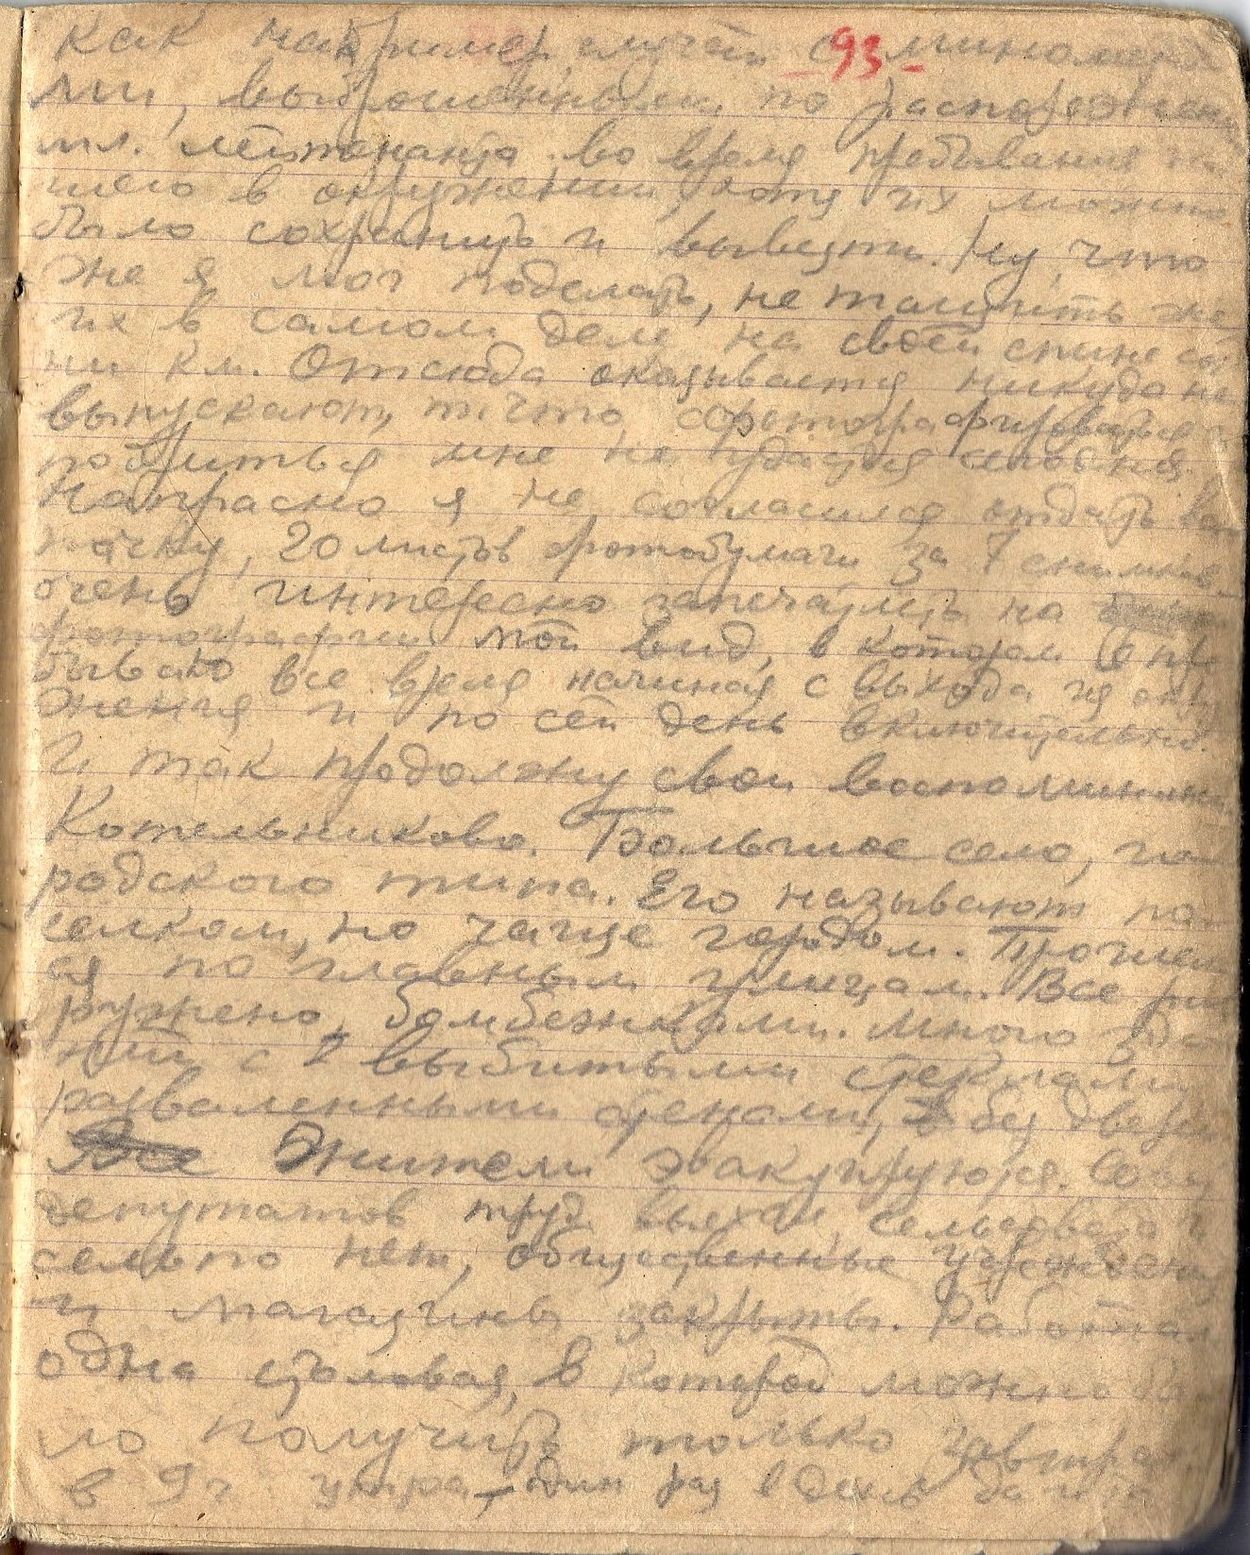 -93-
как например, случай с миномета
ми, выброшенными по распоряжен
мл. лейтенанта во время пребывания на
шего в окружении, хотя их можно
было сохранить и вывезти. Ну, что
же я мог поделать, не тащить же
их в самом деле на своей спине сот
ни км. Отсюда оказывается никуда не
выпускают, т. что сфотографироваться и
побриться мне не удастся сегодня.
Напрасно я не согласился отдать
пачку, 20 листов фотобумаги за 7 снимков
очень интересно запечатлеть на
фотографии мой вид, в котором я пре
бываю все время начиная с выхода из окру
жения и по сей день включительно.
И так продолжу свои воспоминания
Котельниково. Большое село, го
родского типа. Его называют по
селком, но чаще городом. Прошел
ся по главным улицам. Все раз
ружено бомбежками. Много зда
ний с выбитыми стеклами
разваленными стенами, без дверей
Все Жители эвакуируются. Совет
депутатов труд. выехал, сельсовета и
сельпо нет, общественные учреждения
и магазины закрыты. Работал
одна столовая, в которой можно бы
ло получить только завтра
в 9 ч. утра – один раз в день да и то